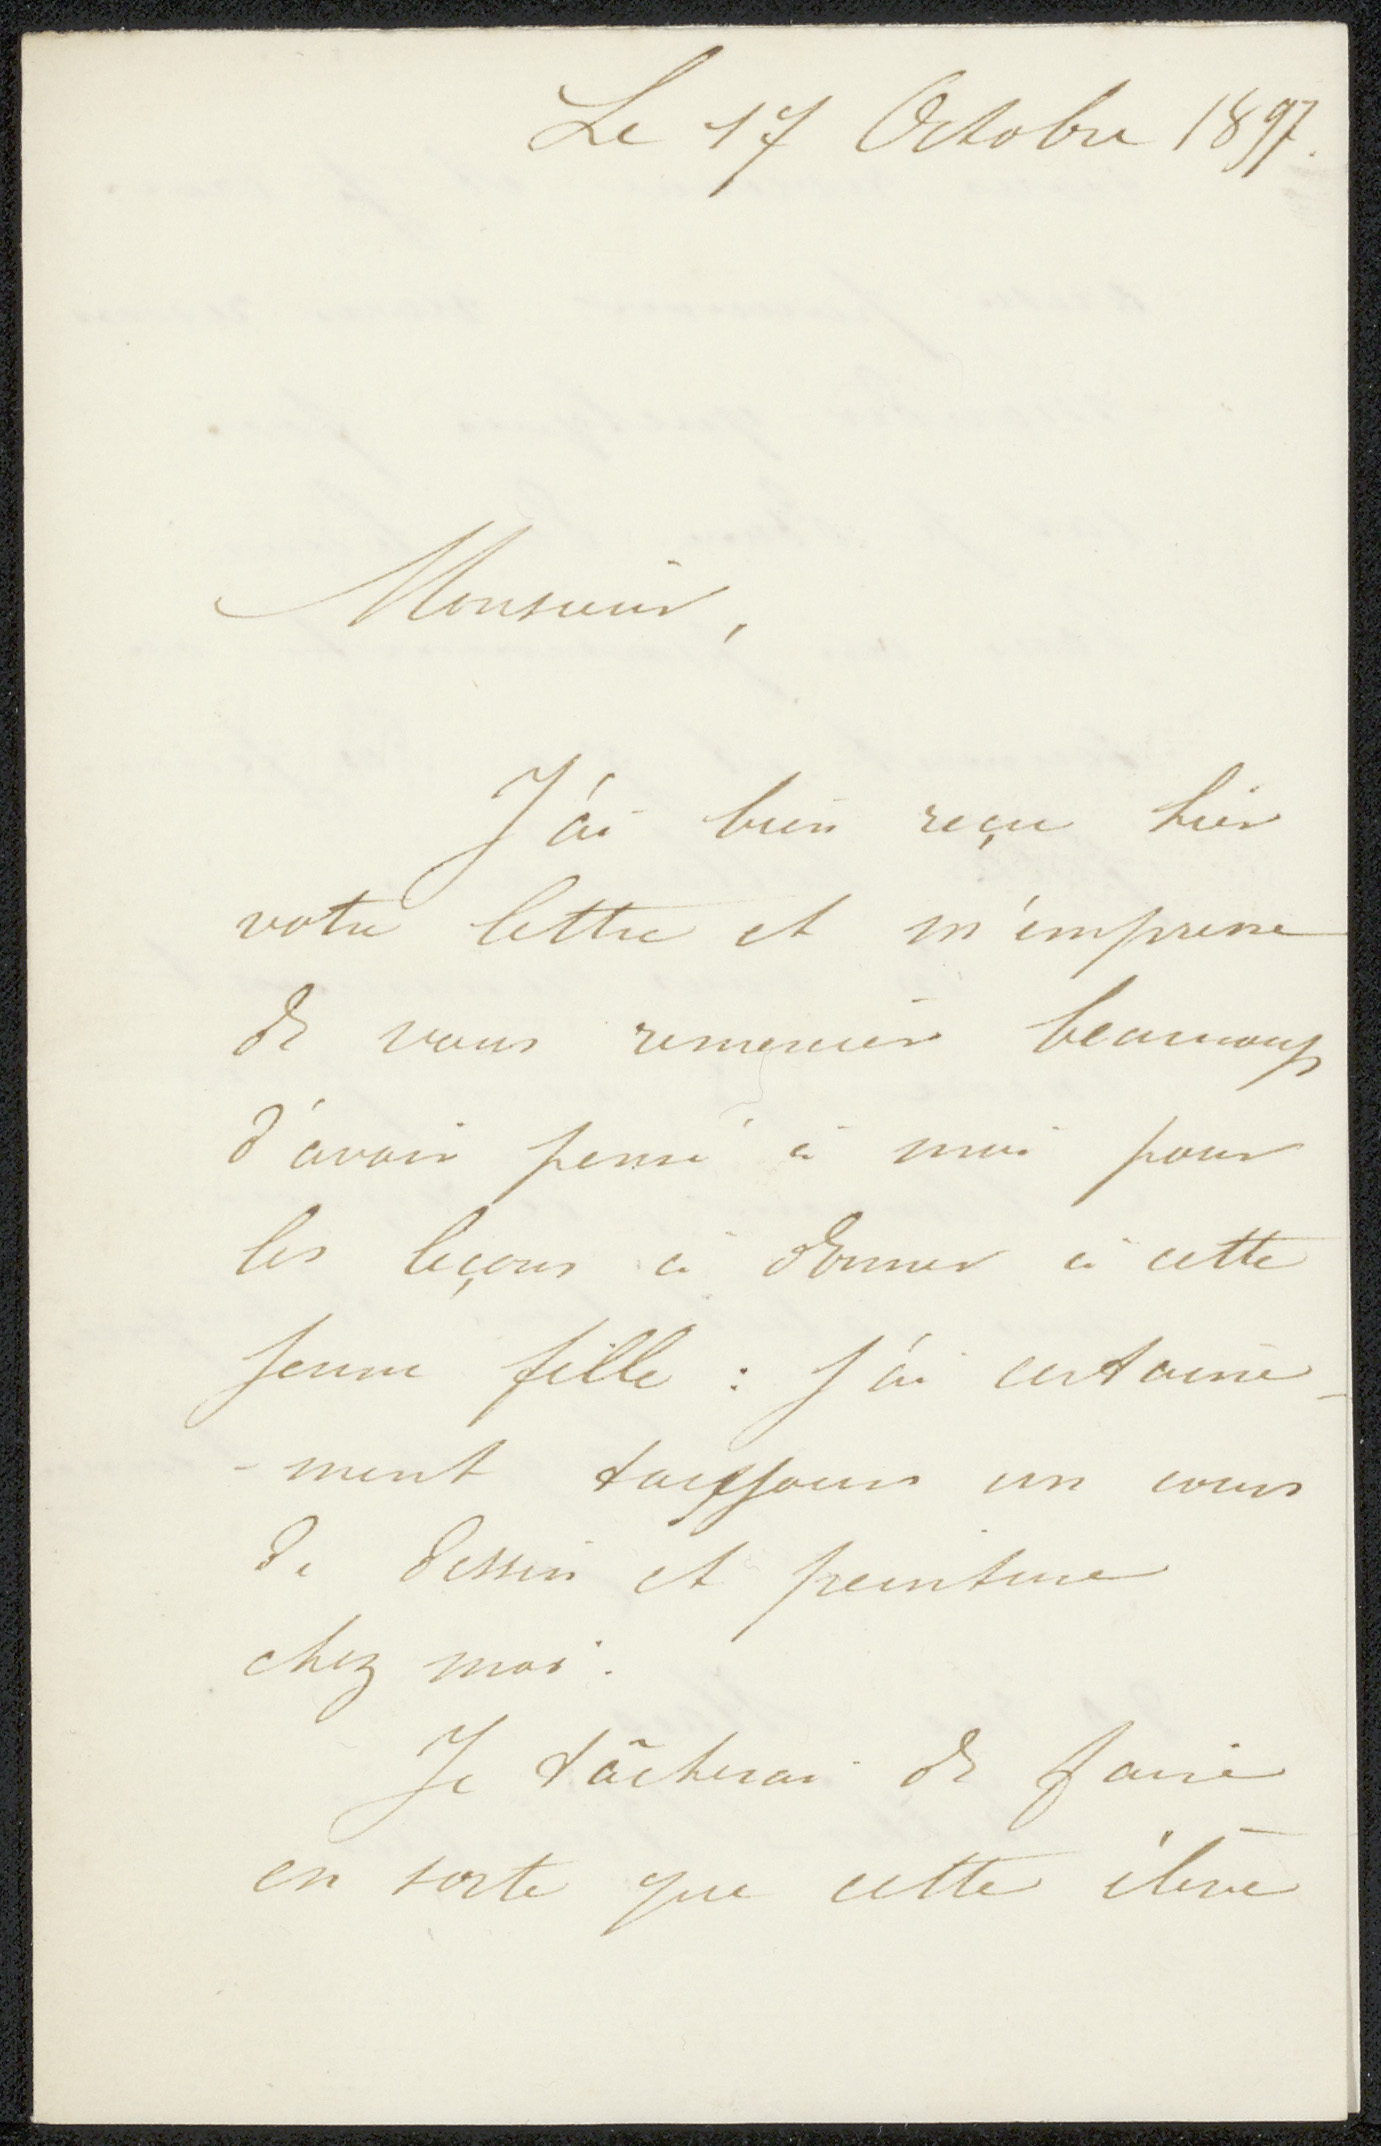 Le 17 Octobre 1897.
Monsieur,
J'ai bien reçu hier
votre lettre et m'empresse
de vous remercier beaucoup
d'avoir pensé à moi pour
les leçons à donner à cette
jeune fille : j'ai certaine-
-ment toujours un cours
de dessin et peinture
chez moi.
Je tâcherai de faire
en sorte que cette élève